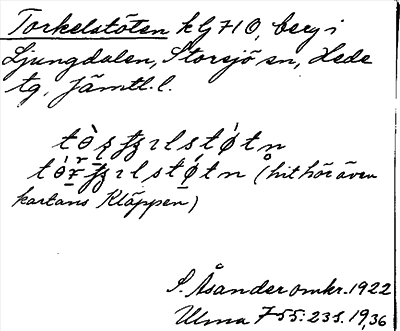 Torkelstöten k G 710, berg i
Ljungdalen, Storsjö sn, Hede
tg, Jämtl. l.
(hit hör även
kartans Kläppen)
S. Åsander omkr. 1922
Ulma 755: 235. 19, 36